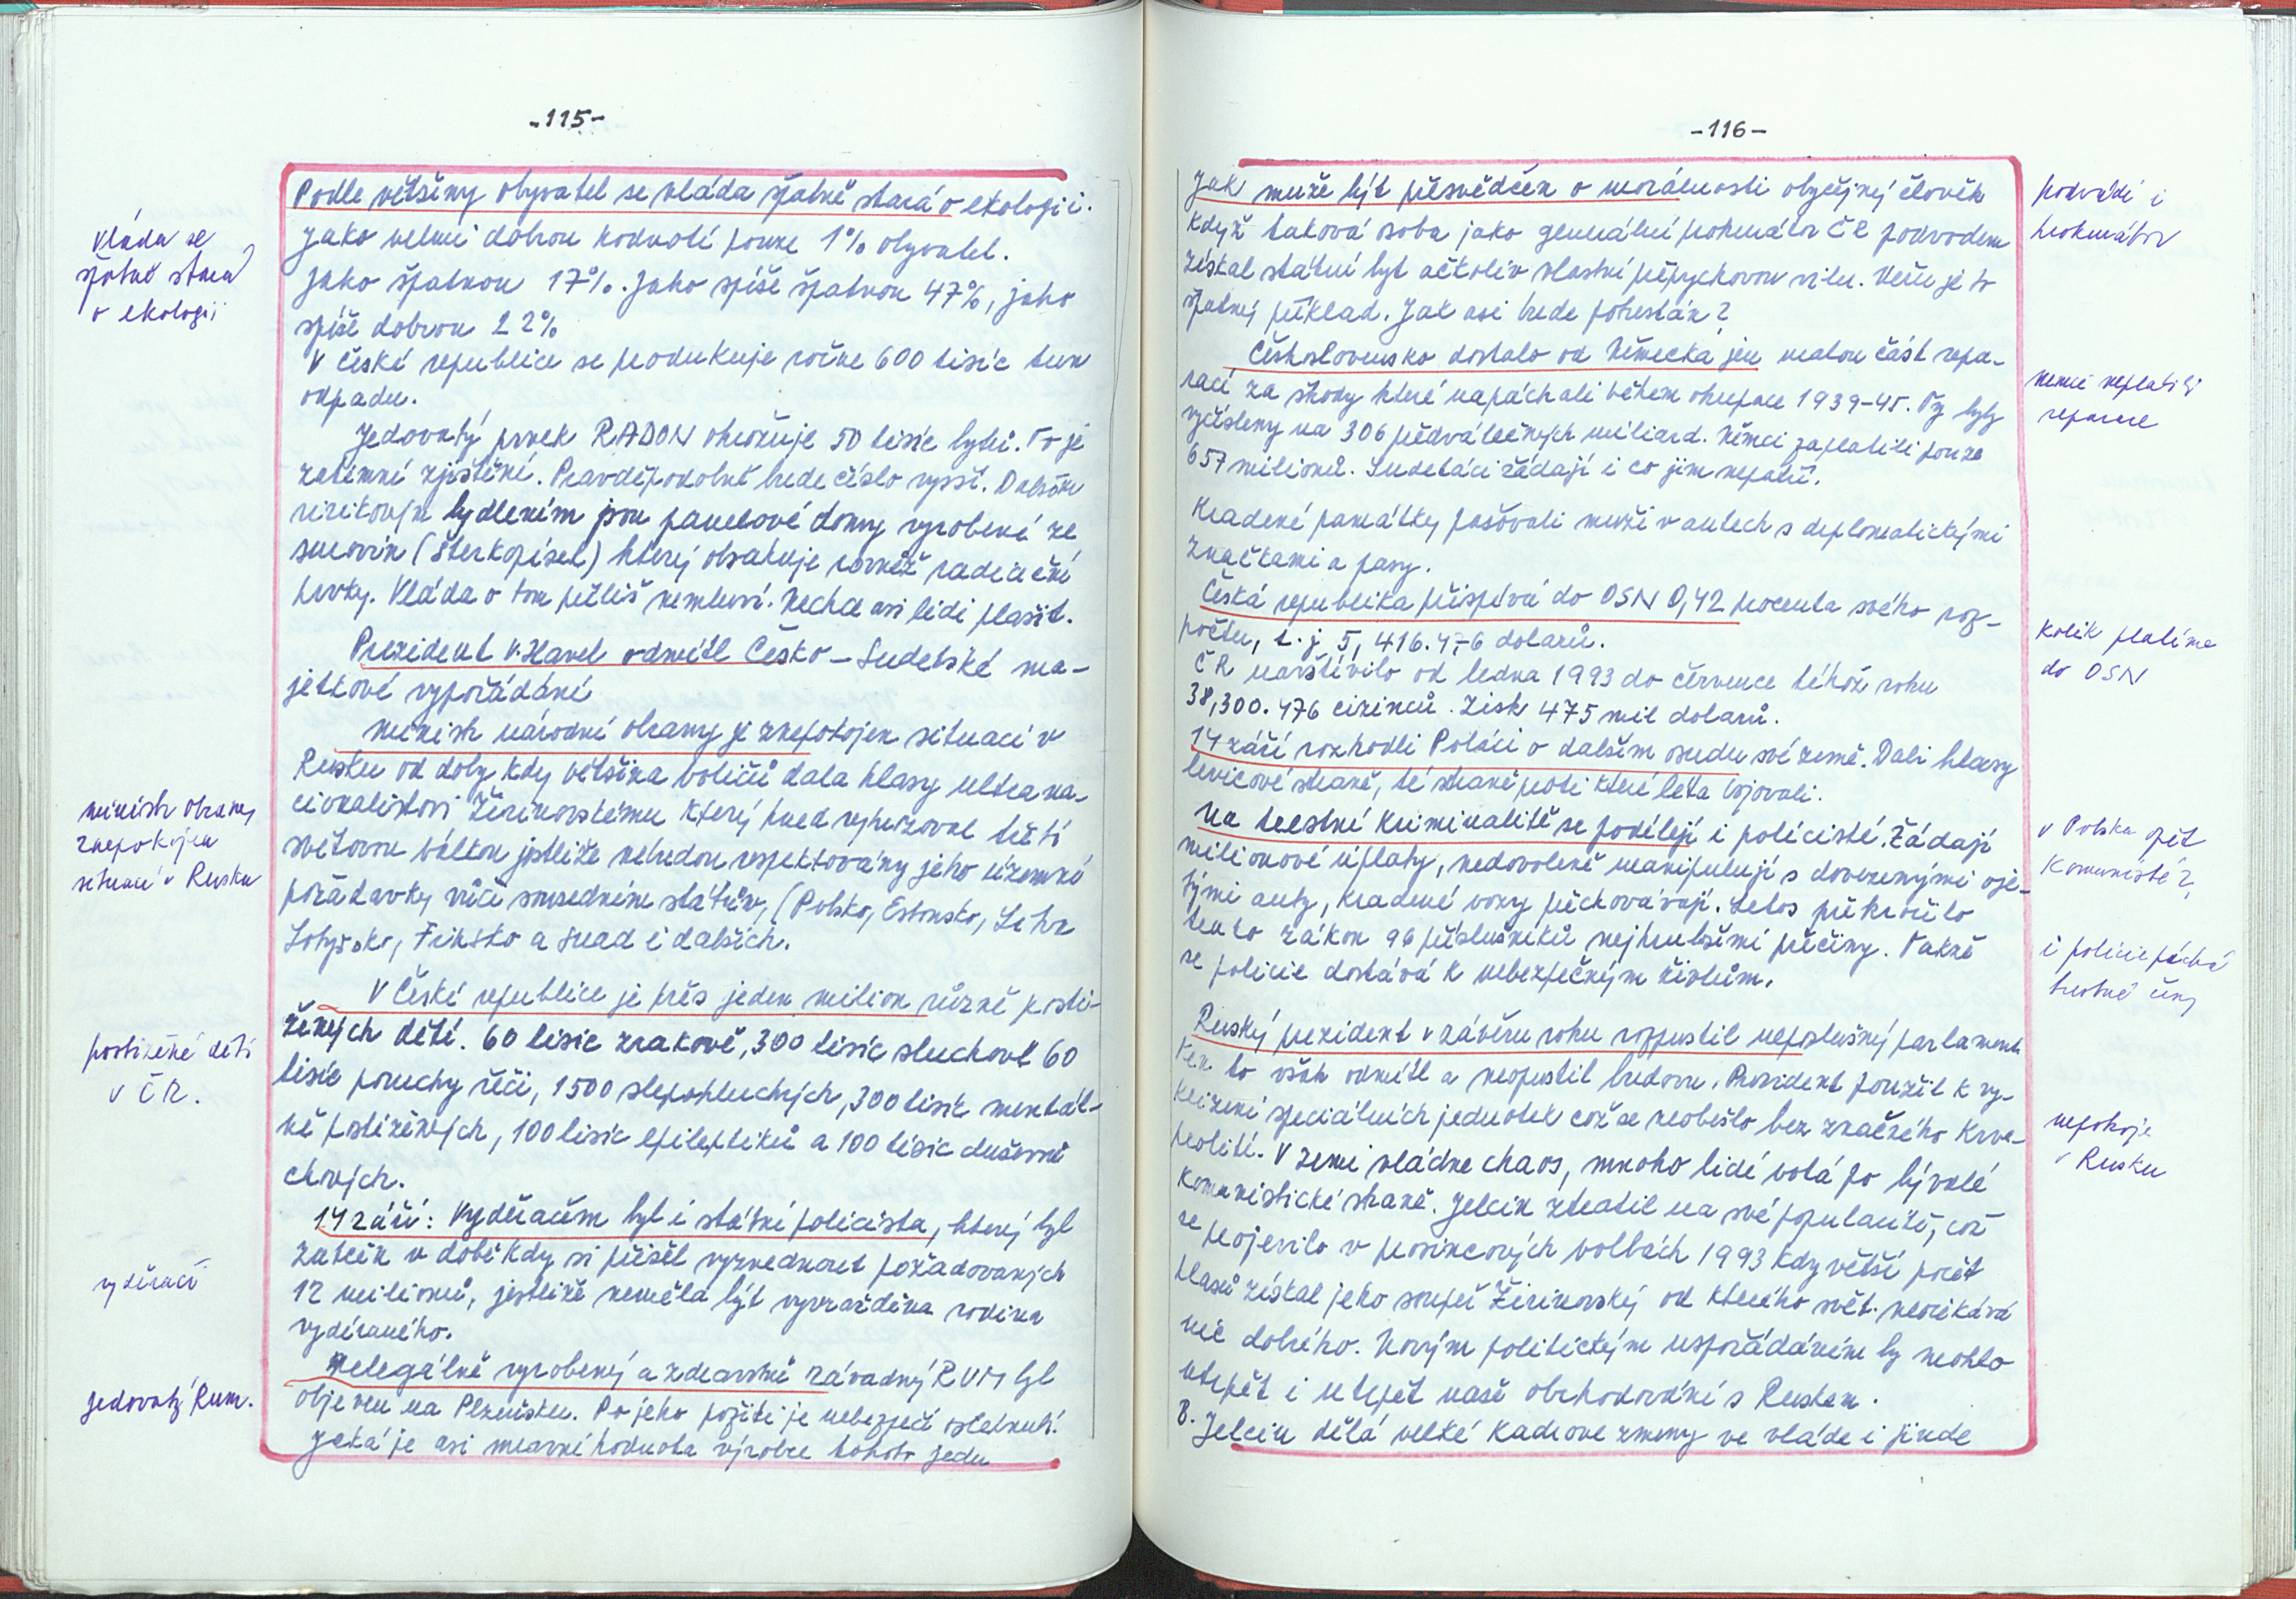 -115-
Vláda se
špatně stará
o ekologii
Podle většiny obyvatel se vláda špatně stará o ekologii.
Jako velmi dobrou hodnotí pouze 1% obyvatel.
Jako špatnou 17%. Jako spíše špatnou 47%, jako
spíše dobrou 22%
V České republice se produkuje ročne 600 tisíc tun
odpadu.
Jedovatý prvek RADON ohrožuje 50 tisíc bytů. To je
zatímní zjištění. Pravděpodobně bude číslo vyšší. Dalším
rizikovým bydlením jsou panelové domy vyrobené ze
surovin (šterkopísek) kterej obsahuje rovněž radiační
prvky. Vláda o tom příliš nemluví. Nechce asi lidi plašit.
Prezident V. Havel odmítl Česko-Sudetské ma-
jetkové vypořádání
ministr obrany
znepokojen
situací v Rusku
ministr národní obrany je znepokojen situací v
Rusku od doby kdy většina voličů dala hlasy ultrana-
cionalistovi Žirinovskému kterej hned vyhrožoval třetí
světovou válkou jestliže nebudou respektovány jeho územní
požadavky vůči sousedním státům, (Polsko, Estonsko, Litva
Lotyšsko, Finsko a snad i dalších.
postižené děti
v ČR.
V České republice je přes jeden milion různě posti-
žených dětí. 60 tisíc zrakově, 300 tisíc sluchově 60
tisíc poruchy řeči, 1500 slepohluchých, 300 tisíc mentál-
ně postižených, 100 tisíc epileptiků a 100 tisíc duševně
chorých.
vyděrači
14 září: Vyděračem byl i státní policista, kterej byl
zatčen v době kdy si přišel vyzvednout požadovaných
12 milionů, jestliže neměla být vyvražděna rodina
vydíraného.
Jedovatý Rum.
Nelegálně vyrobenej a zdravotně závadnej RUM byl
objeven na Plzeňsku. Po jeho požití je nebezpečí oslepnutí.
Jaká je asi mravní hodnota výrobce tohoto jedu
-116-
podvádí i
prokurátor
Jak muže být přesvědčen o morálnosti obyčejnej člověk
když taková osoba jako generální prokurátor ČR podvodem
získal státní byt ačkoliv vlastní přepychovou vilu. Věru je to
špatnej příklad. Jak asi bude potrestán?
němci neplatili
reparace
Československo dostalo od Německa jen malou část repa-
rací za škody které napáchali během okupace 1939-45. Ty byly
vyčísleny na 306 předválečných miliard. Němci zaplatili pouze
657 milionů. Sudetáci žádají i co jim nepatří.
Kradené památky pašovali muži v autech s deplomatickými
značkami a pasy.
kolik platíme
do OSN
Česká republika přispívá do OSN 0,42 procenta svého roz-
počtu, t.j. 5,416.476 dolarů.
ČR navštívilo od ledna 1993 do července téhož roku
38,300.476 cizinců. Zisk 475 mil dolarů.
v Polsku opět
Komunisté?
14 září rozhodli Poláci o dalším osudu své země. Dali hlasy
levicové straně, té straně proti které léta bojovali.
i policie páchá
trestné činy
Na trestné kriminalitě se podílejí i policisté. Žádají
milionové úplaty, nedovoleně manipulují s dovezenými oje-
tými auty, kradené vozy přechovávají. Letos překročilo
tento zákon 96 příslušníků nejhrubšími přečiny. Takže
se policie dostává k nebezpečným živlům.
nepokoje
v Rusku
Ruskej prezident v závěru roku rozpustil neposlušnej parlament
Ten to však odmítl a neopustil budovu. Prezident použil k vy-
klizení speciálních jednotek což se neobešlo bez značného krve-
prolití. V zemi vládne chaos, mnoho lidí volá po bývalé
komunistické straně. Jelcin ztratil na své popularitě, což
se projevilo v prosincových volbách 1993 kdy větší počet
hlasů získal jeho soupeř Žirinovskej od kterého svět neočekává
nic dobrého. Novým politickým uspořádáním by mohlo
utrpět i utrpět naše obchodování s Ruskem.
B. Jelcin dělá velké kadrove změny ve vládě i jinde